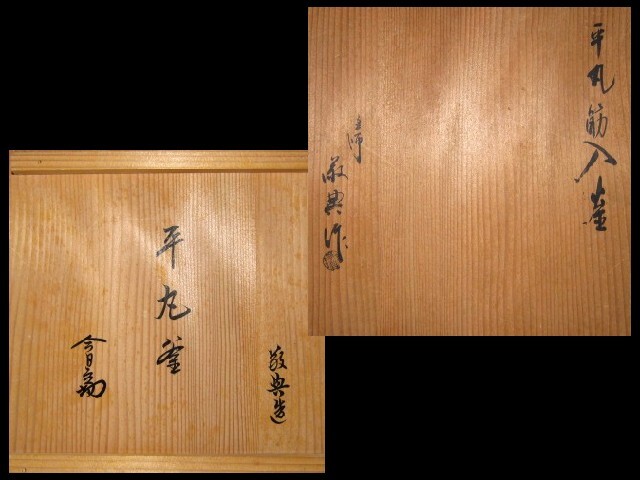 平丸筋入釜
釜師
敬典作
敬典造
平丸釜
今日庵